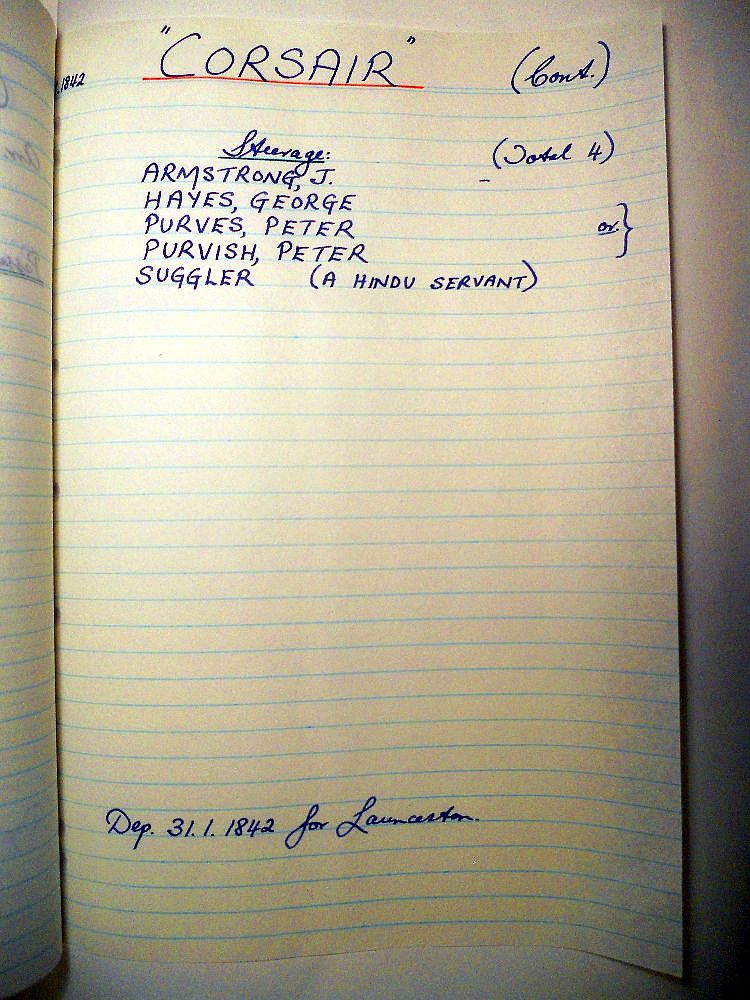 "CORSAIR" (Cont.)
.1842
Steerage: (Total 4)
ARMSTRONG, J. –
HAYES, GEORGE
PURVES, PETER or }
PURVISH, PETER
SUGGLER (A HINDU SERVANT)
Dep. 31.1.1842 for Launceston.